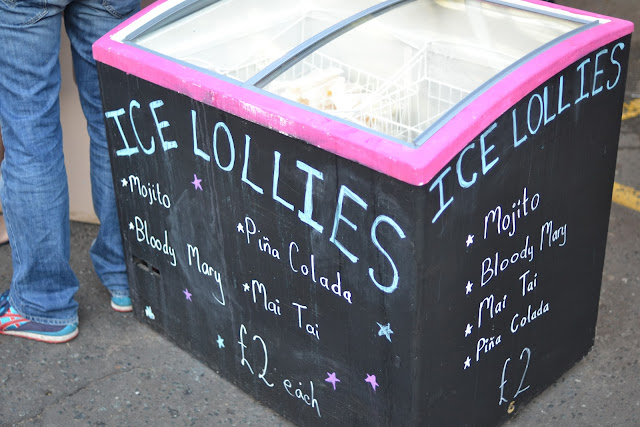 ICE LOLLIES
Mojito
Bloody Mary
Piña Colada
Mai Tai
£2 each
ICE LOLLIES
Mojito
Bloody Mary
Mai Tai
Piña Colada
£2